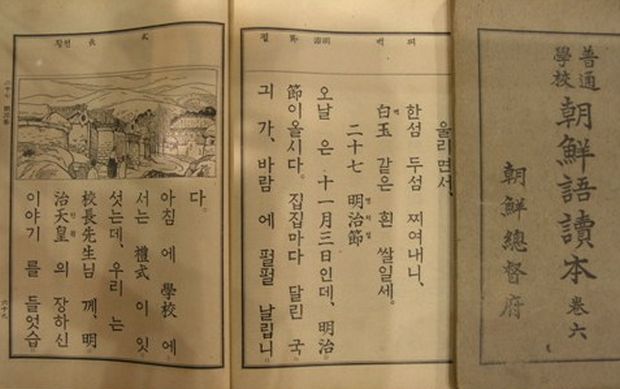 普通
學校
朝鮮語讀本 卷六
朝鮮總督府
울리면서、
한섬 두섬 찌여내니、
白玉 같은 흰 쌀일세。
二十七 明治節
오날 은 十一月三日인데、明治
節이올시다。집집마다 달린 국
긔 가、바람 에 펄펄 날립니
다。
아침 에 學校 에
서는 禮式 이 잇
섯는데、우리 는
校長先生님 께、明
治天皇 의 장하신
이야기 를 들엇습
二十七 明治節
六十九